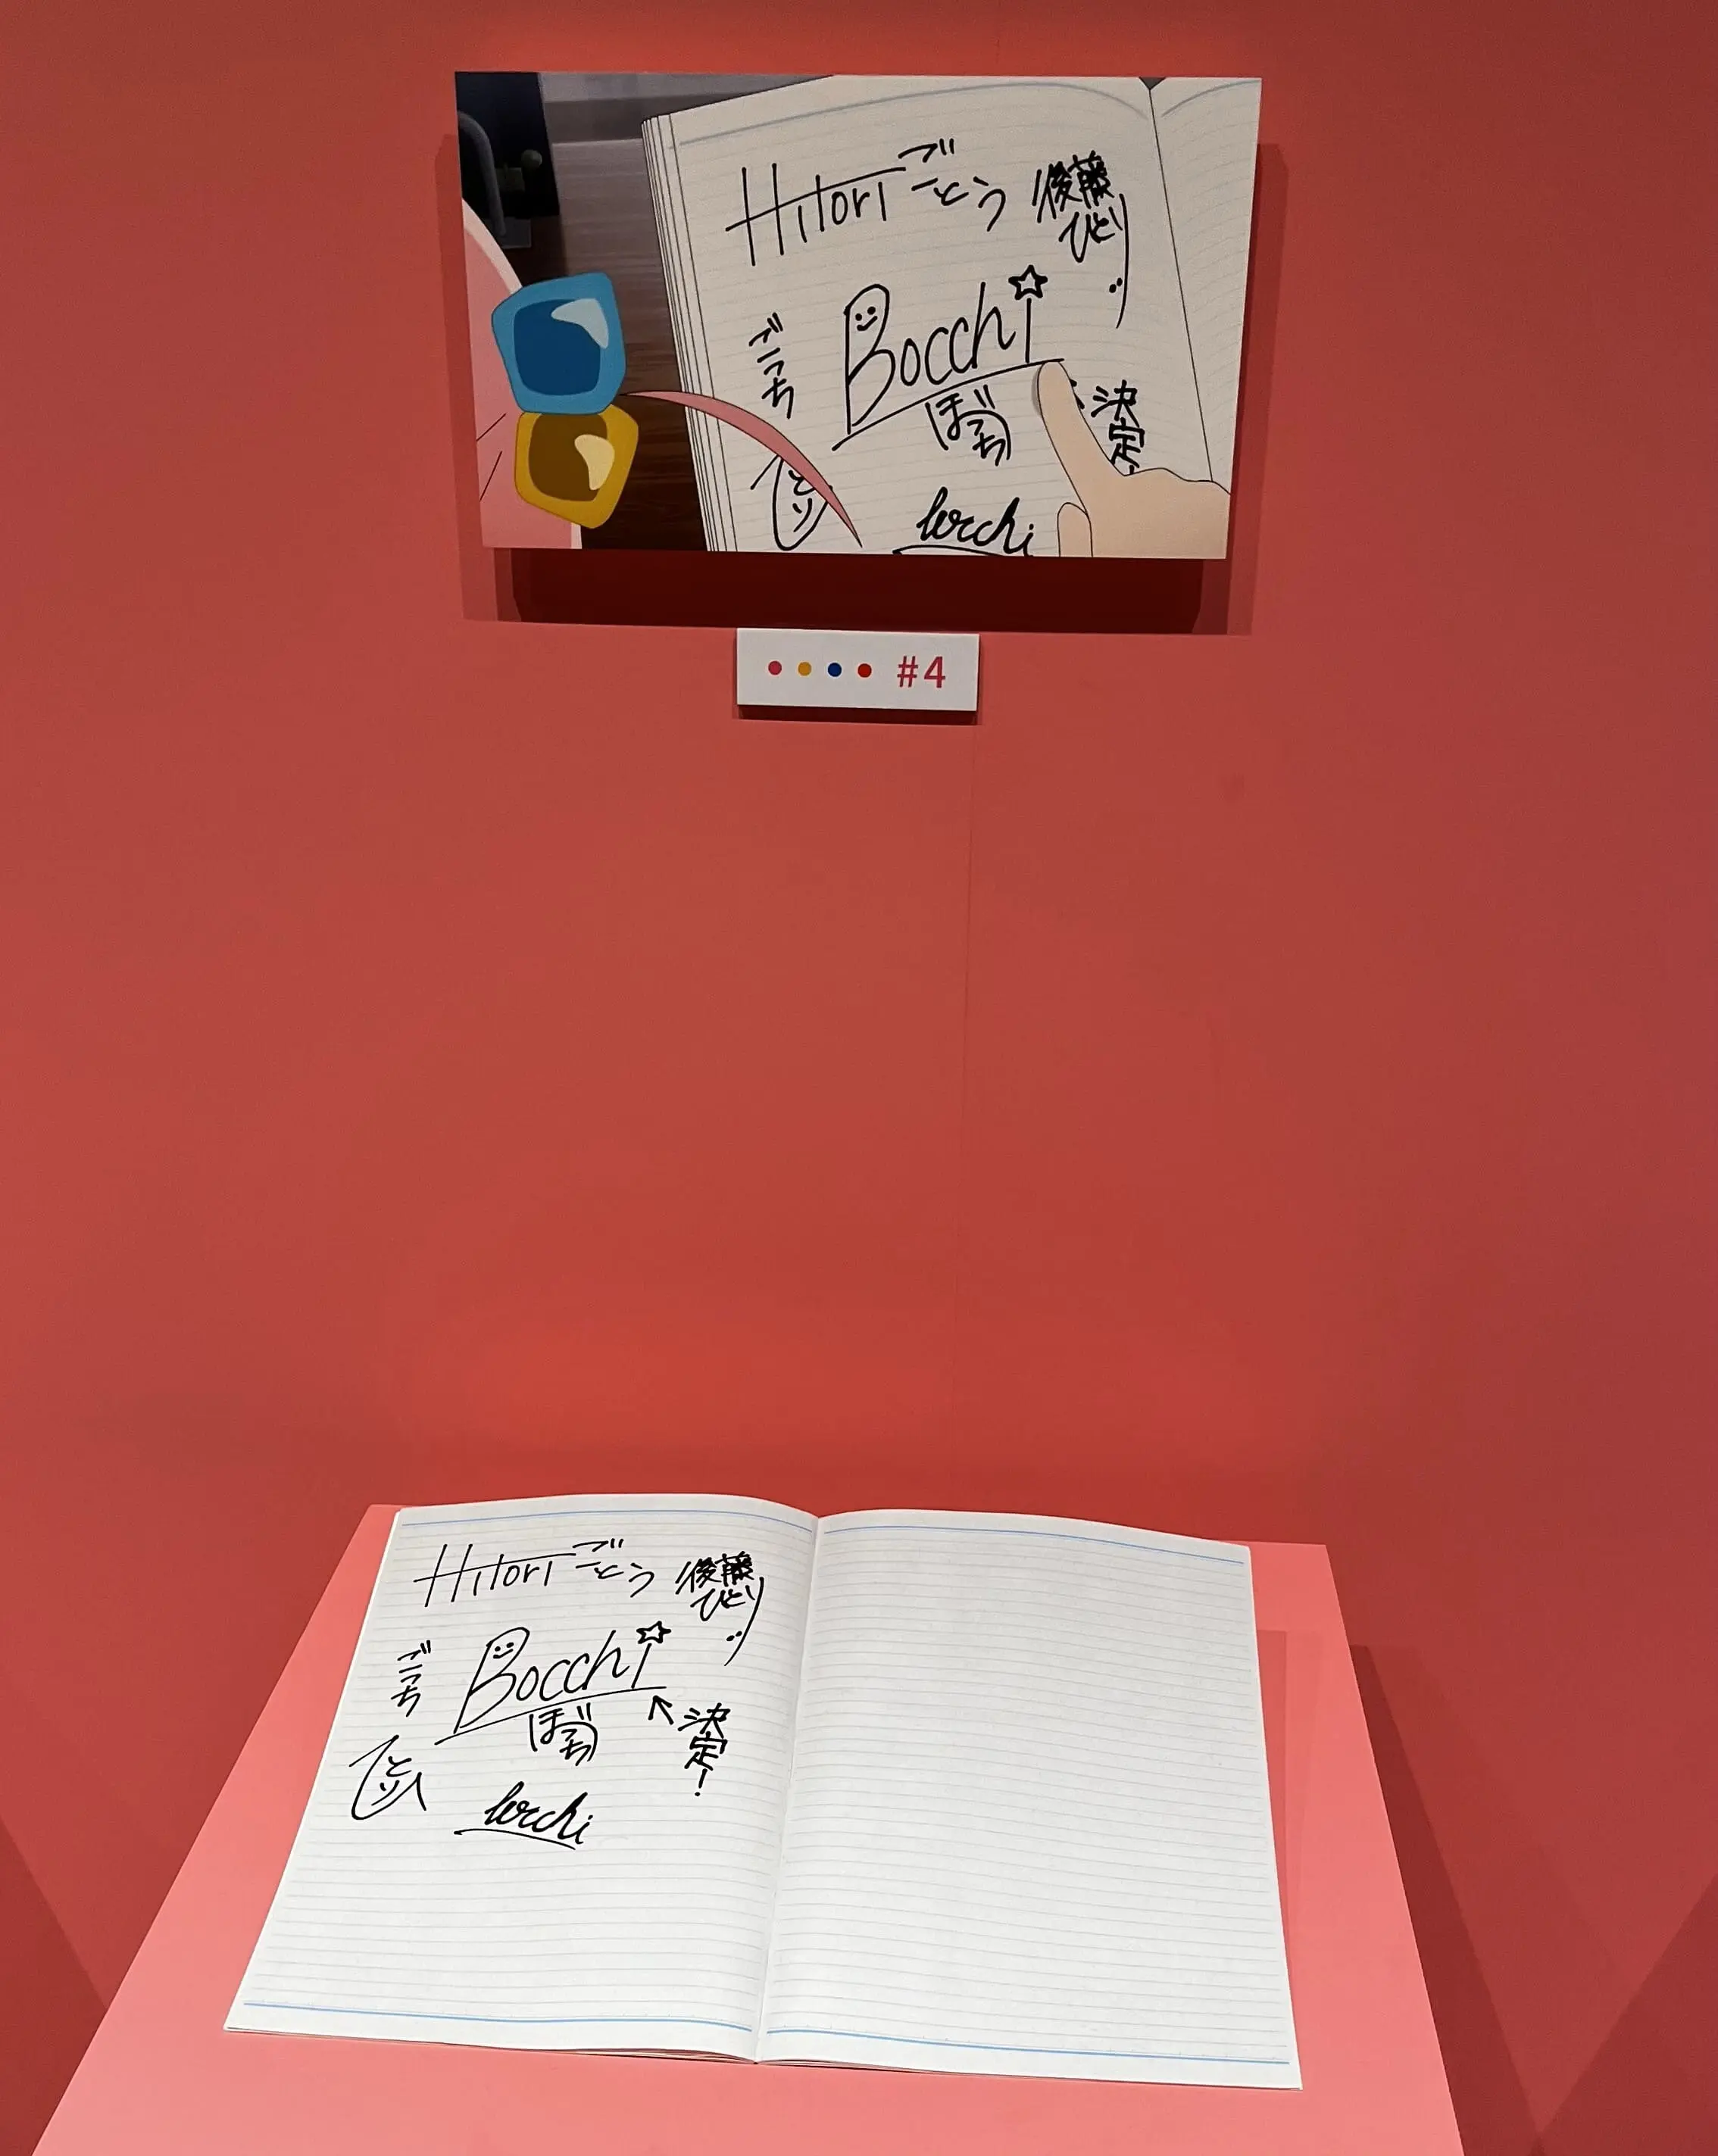 Hitori ごとう
後藤
ひとり
Bocchi
ごっち
ぼっち
決
定
ひとり
bocchi
#4
Hitori ごとう
後藤
ひとり
Bocchi
ごっち
ぼっち
決
定
!
ひとり
bocchi